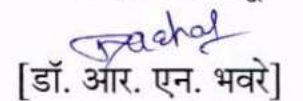 [डॉ. आर. एन. भवरे]